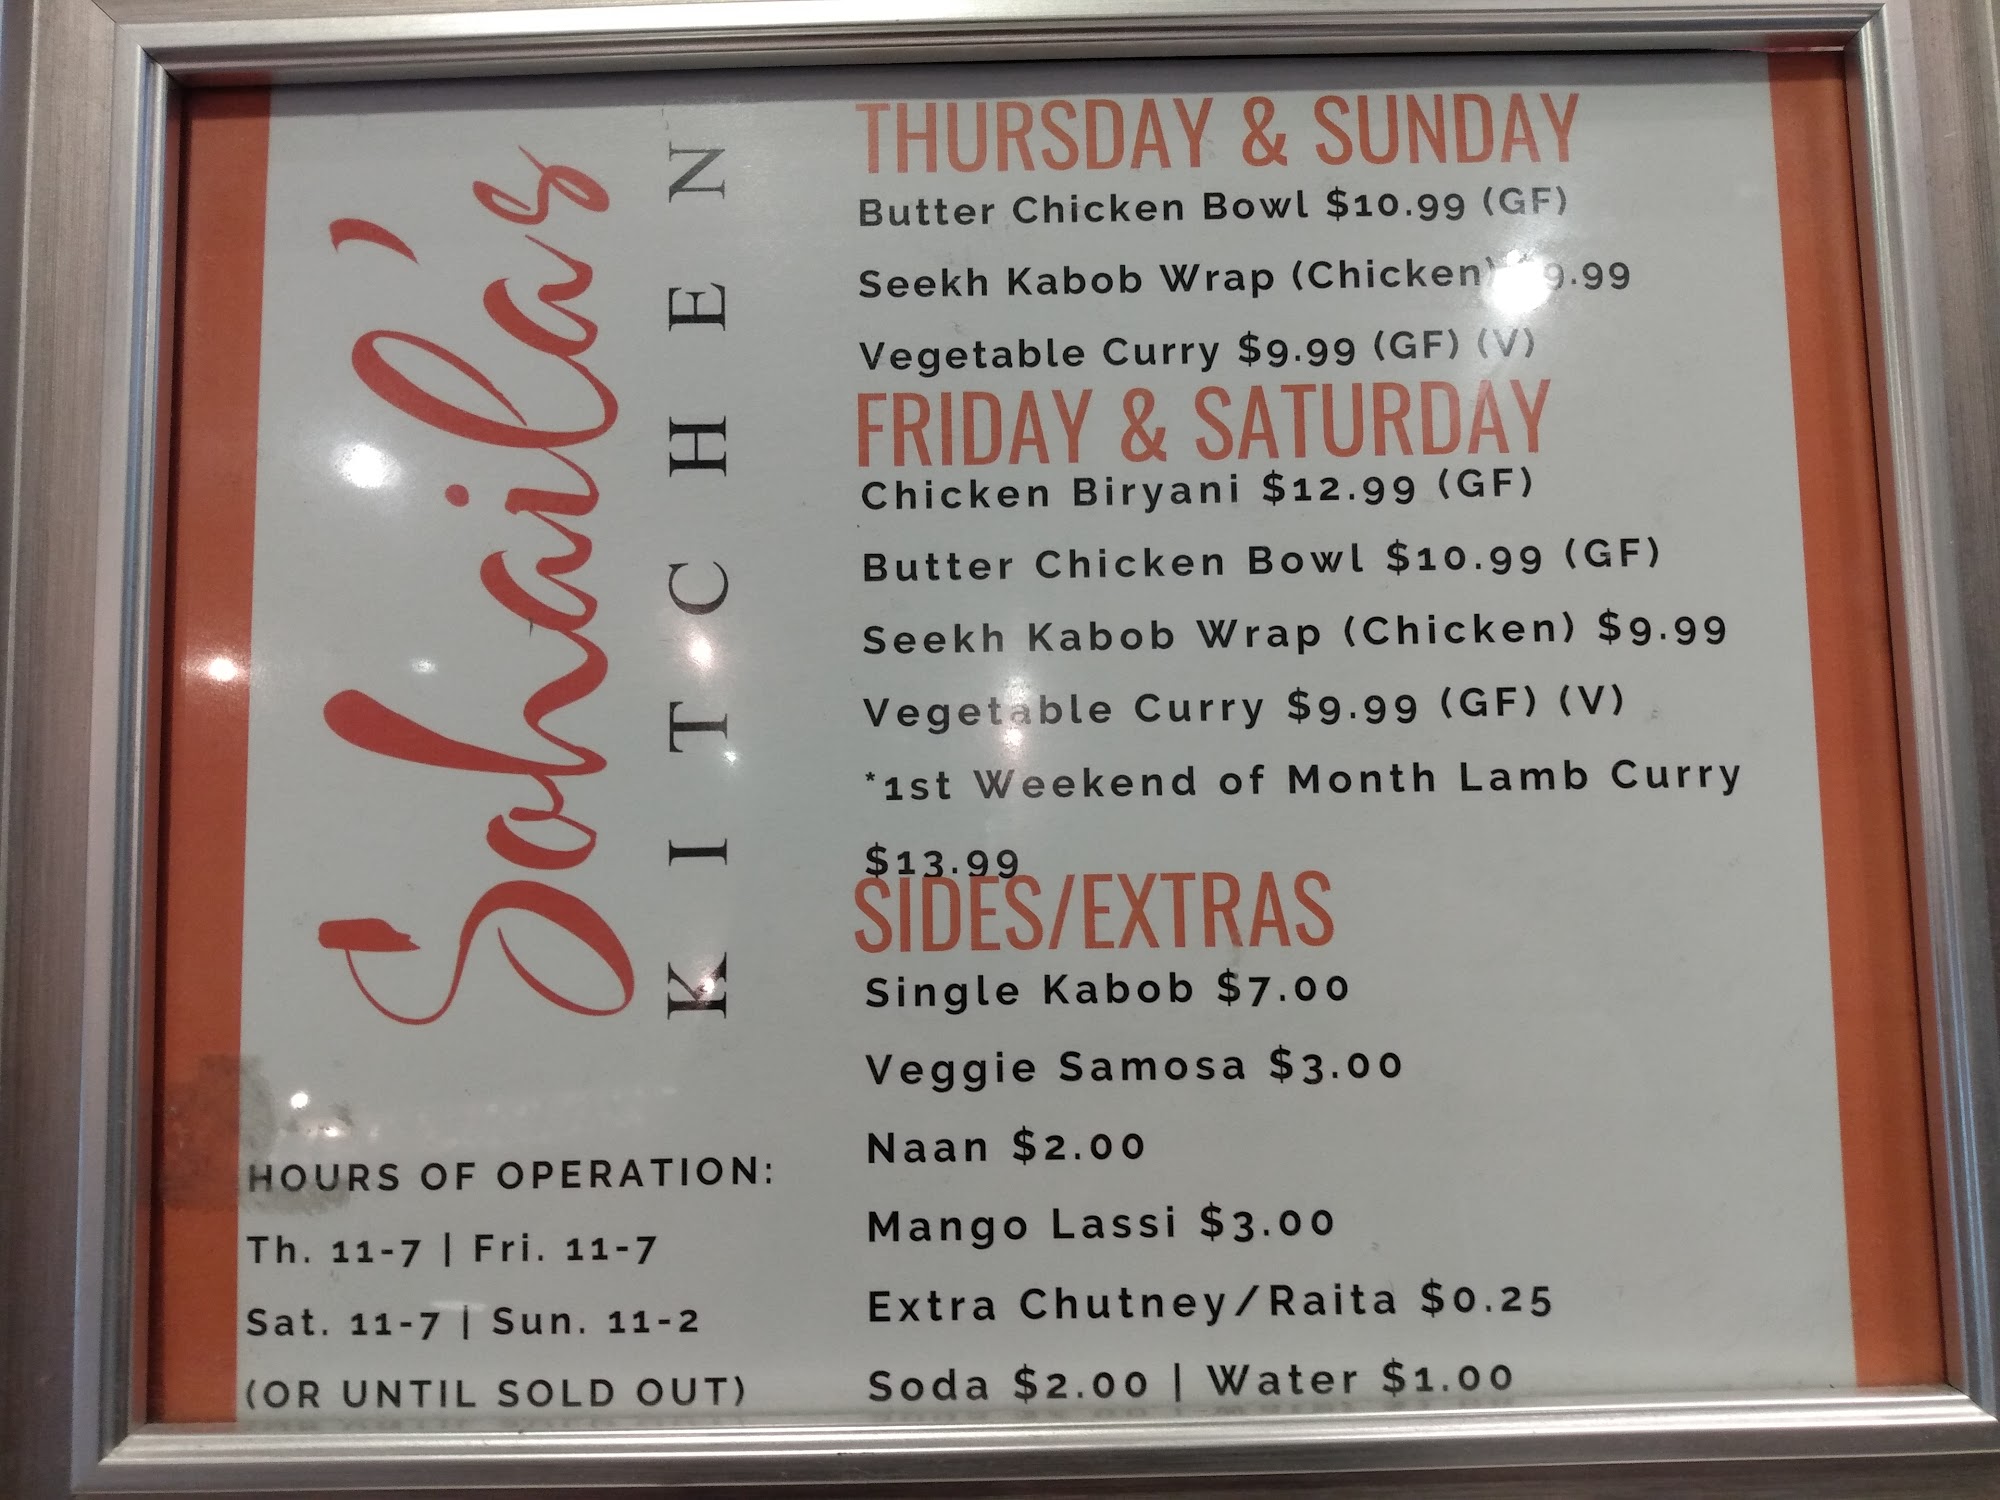 Sohaila's
KITCHEN
HOURS OF OPERATION:
Th. 11-7 | Fri. 11-7
Sat. 11-7 | Sun. 11-2
(OR UNTIL SOLD OUT)
THURSDAY & SUNDAY
Butter Chicken Bowl $10.99 (GF)
Seekh Kabob Wrap (Chicken) $9.99
Vegetable Curry $9.99 (GF) (V)
FRIDAY & SATURDAY
Chicken Biryani $12.99 (GF)
Butter Chicken Bowl $10.99 (GF)
Seekh Kabob Wrap (Chicken) $9.99
Vegetable Curry $9.99 (GF) (V)
*1st Weekend of Month Lamb Curry
$13.99
SIDES/EXTRAS
Single Kabob $7.00
Veggie Samosa $3.00
Naan $2.00
Mango Lassi $3.00
Extra Chutney/Raita $0.25
Soda $2.00 | Water $1.00